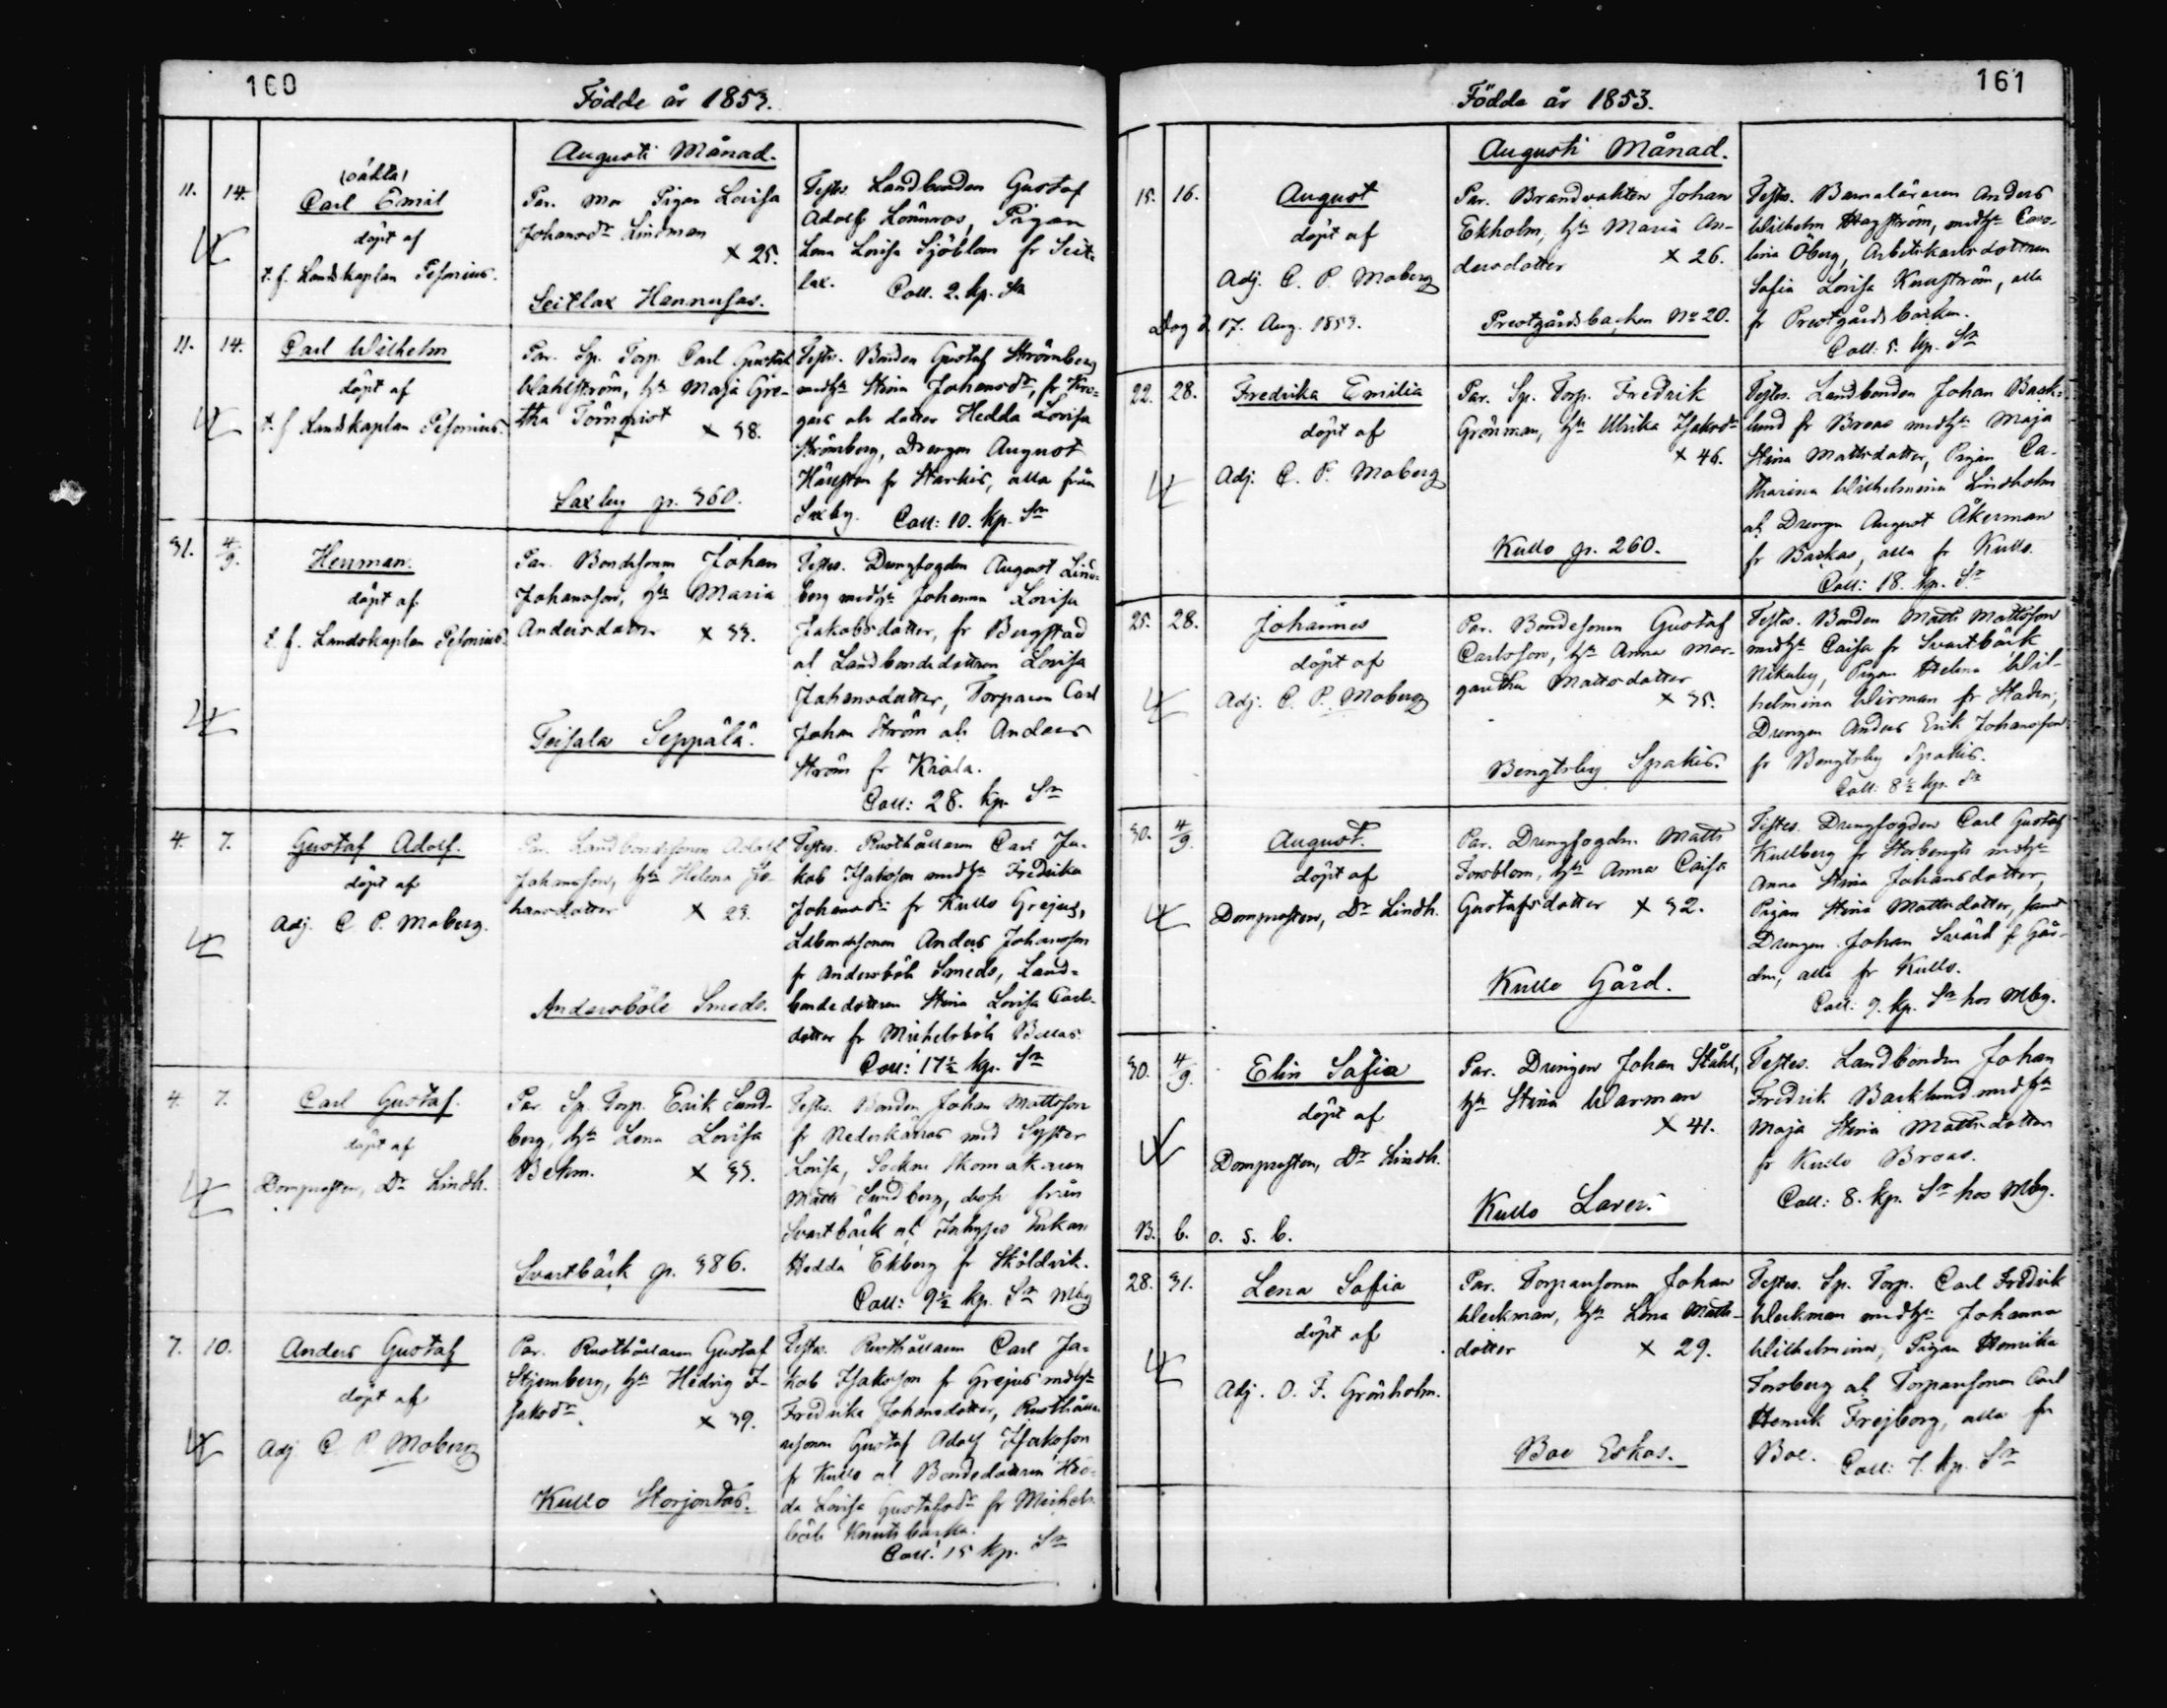 160
Födde år 1853.
Augusti Månad.
11. 14.
(oäkta)
Carl Emil
döpt af
t. f. Landskaplan Pesonius.
Par. Mor Pigan Lovisa
Johansdr Lindman
x 25.
Seitlax Hannusas.
Testes. Landbonden Gustaf
Adolf Lönnros, Pigan
Lena Lovisa Sjöblom fr Seit-
lax.
Coll. 2. kp. Sr
11. 14.
Carl Wilhelm
döpt af
t. f. Landskaplan Pesonius.
Par. Sp. Torp. Carl Gustaf
Wahlström, hu Maja Gre-
tha Törnqvist
x 38.
Saxby p. 360.
Testes. Bonden Gustaf Strömberg
medhu Stina Johansdr, fr
gars och dotter Hedda Lovisa
Strömberg, Drengen August
fr Starkis, alla från
Saxby. Coll: 10. kp. Sr
31. 4/9.
Herman.
döpt af
t. f. Landskaplan Pesonius.
Par. Bondesonen Johan
Johansson, hu Maria
Andersdotter x 33.
Teisala Seppälä.
Testes. Drengfogden August Lind-
berg medhu Johanna Lovisa
Jakobsdotter, fr Bergstad
at Landbondedottren Lovisa
Johansdotter, Torparen Carl
Johan Ström och Anders
Ström fr Kiala.
Coll: 28. kp. Sr
4. 7.
Gustaf Adolf.
döpt af
Adj. C. P. Moberg.
Par. Landbondesonen Adolf
Johansson, hu Helena Jo-
hansdotter x 23.
Andersböle Smeds.
Testes. Rusthållaren Carl Ja-
kob Isaksson medhu Fredrika
Johansdr fr Kullo Grejus,
Ldbondesonen Anders Johansson
fr Andersböle Smeds, Land-
bondedottren Stina Lovisa Carls-
dotter fr Mickelsböle Bellas.
Coll: 17½ kp. Sr
4. 7.
Carl Gustaf.
döpt af
Domprosten, Dr Lindh.
Par. Sp. Torp. Erik Sund-
berg, hu Lena Lovisa
Behm. x 33.
Svartbäck p. 386.
Testes. Bonden Johan Mattsson
fr Nederkärras med Syster
Lovisa, Sockne Skomakaren
Matts Sundberg, dess från
Svartbäck at Inhyses Enkan
Hedda Ekberg fr Sköldvik.
Coll: 9½ kp. Sr Mbg
7. 10.
Anders Gustaf
döpt af
Adj. C. P. Moberg
Par. Rusthållaren Gustaf
Stjernberg, hu Hedvig I-
saksdr. x 39.
Kullo Storjontas.
Testes. Rusthållaren Carl Ja-
kob Isaksson fr Grejus medhu
Fredrika Johansdotter, Rusthålla-
resonen Gustaf Adolf Isaksson
fr Kullo at Bondedottren Hed-
da Lovisa Gustafsdr fr Mickels-
böle Knutsbacka.
Coll: 15 kp. Sr
161
Födda år 1853.
Augusti Månad.
15. 16.
August
döpt af
Adj. C. P. Moberg
Dog d. 17. Aug. 1853.
Par. Brandvakten Johan
Ekholm, hu Maria An-
dersdotter x 26.
Prestgårdsbacken No 20.
Testes. Barnaläraren Anders
Wilhelm Hagström, medhu Caro-
lina Öberg, Arbetskarlsdottren
Sofia Lovisa, alla
fr Prestgårdsbacken.
Coll: 5. kp. Sr
22. 28.
Fredrika Emilia
döpt af
Adj. C. P. Moberg
Par. Sp. Torp. Fredrik
Grönman, hu Ulrika Isaksdr
x 46.
Kullo p. 260.
Testes. Landbonden Johan Back-
lund fr Broas medhu Maja
Stina Mattsdotter, Pigan Ca-
tharina Wilhelmina Lindholm
at Drengen August Åkerman
fr Backas, alla fr Kullo.
Coll: 18. kp. Sr
25. 28.
Johannes
döpt af
Adj. C. P. Moberg
Par. Bondesonen Gustaf
Carlsson, hu Anna Mar-
garetha Mattsdotter
x 35.
Bengtsby Spakis.
Testes. Bonden Matts Mattsson
medhu Caisa fr Svartbäck
Nikuby, Pigan Helena Wil-
helmina Wirman fr Staden,
Drengen Anders Erik Johansson
fr Bengtsby Spakis.
Coll: 8½ kp. Sr
30. 4/9.
August.
döpt af
Domprosten, Dr Lindh.
Par. Drengfogden Matts
Forsblom, hu Anna Caisa
Gustafsdotter x 32.
Kullo Gård.
Testes. Drengfogden Carl Gustaf
Kullberg fr Storbengts medhu
Anna Stina Johansdotter,
Pigan Stina Mattsdotter, samt
Drengen Johan Svärd fr Går-
den, alla fr Kullo.
Coll: 9. kp. Sr hos Mbg.
30. 4/9.
Elin Sofia
döpt af
Domprosten, Dr Lindh.
B. b. o. s. b.
Par. Drengen Johan Ståhl,
hu Stina Warman
x 41.
Kullo Lavers.
Testes. Landbonden Johan
Fredrik Backlund medhu
Maja Stina Mattsdotter
fr Kullo Broas.
Coll: 8. kp. Sr hos Mbg.
28. 31.
Lena Sofia
döpt af
Adj. O. F. Grönholm.
Par. Torparesonen Johan
Weckman, hu Lena Matts-
dotter x 29.
Boe Eskas.
Testes. Sp. Torp. Carl Fredrik
Weckman medhu Johanna
Wilhelmina, Pigan Henrika
Forsberg at Torparesonen Carl
Henrik Frejborg, alla fr
Boe. Coll: 7. kp. Sr